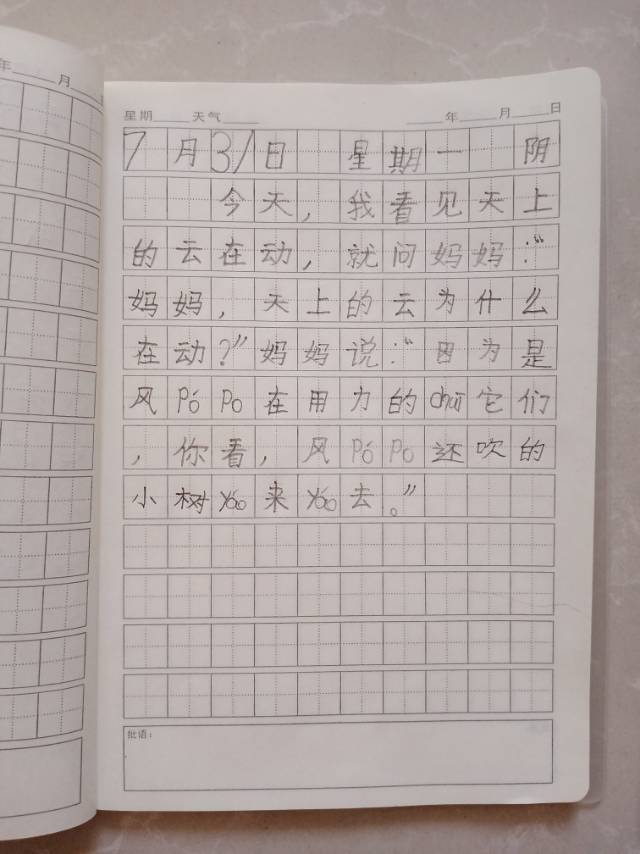 年 月
星期 天气 年 月 日
7月31日 星期一 阴
今天,我看见天上
的云在动,就问妈妈:“
妈妈,天上的云为什么
在动?”妈妈说:“因为是
风Pó Po在用力的chuī它们
,你看,风Pó Po还吹的
小树yáo来yáo去。”
批语: